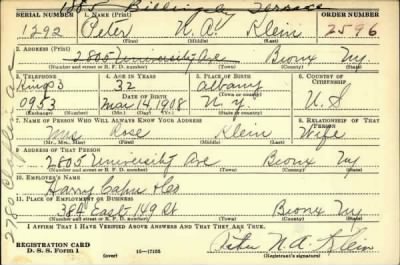 1885 Billingsley Terrace
SERIAL NUMBER 1. NAME (Print) ORDER NUMBER
1292 Peter N.A. Klein 2596
(First) (Middle) (Last)
2. ADDRESS (Print)
2805 University Ave Bronx Ny.
(Number and street or R. F. D. number) (Town) (County) (State)
3. TELEPHONE 4. AGE IN YEARS 5. PLACE OF BIRTH 6. COUNTRY OF CITIZENSHIP
Kings 3 32 Albany
0953 Mar. 14, 1908 N.Y. U.S
7. NAME OF PERSON WHO WILL ALWAYS KNOW YOUR ADDRESS 8. RELATIONSHIP OF THAT PERSON
Mrs Rose Klein Wife
(Mr., Mrs., Miss) (First) (Middle) (Last)
9. ADDRESS OF THAT PERSON
2805 University Ave Bronx Ny
(Number and street or R. F. D. number) (Town) (County) (State)
10. EMPLOYER'S NAME
Harry Cahn
11. PLACE OF EMPLOYMENT OR BUSINESS
384 East 149 St Bronx Ny
(Number and street or R. F. D. number) (Town) (County) (State)
I AFFIRM THAT I HAVE VERIFIED ABOVE ANSWERS AND THAT THEY ARE TRUE.
REGISTRATION CARD
D. S. S. Form 1 (over) Peter N.A. Klein
(Registrant's signature)
2780 Claflin Ave